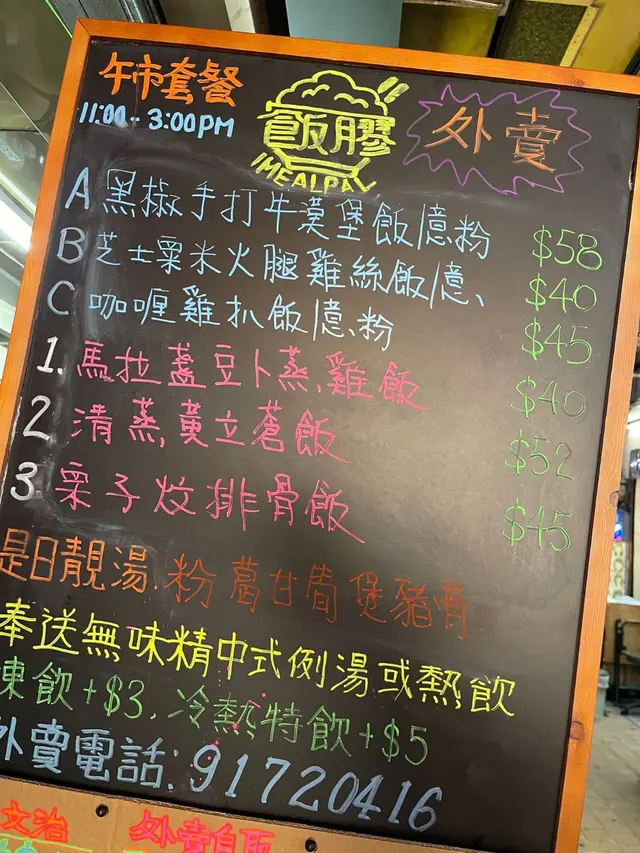 午市套餐
11:00 - 3:00PM
飯膠
MEALPAL
外賣
A 黑椒手打牛漢堡飯/意粉 $58
B 芝士粟米火腿雞絲飯/意、 $40
C 咖喱雞扒飯/意粉 $45
1. 馬拉盞豆卜蒸雞飯 $40
2 清蒸黃立蒼飯 $52
3 栗子炆排骨飯 $45
是日靚湯: 粉葛甘筒煲豬骨
奉送無味精中式例湯或熱飲
凍飲+$3, 冷熱特飲+$5
外賣電話: 91720416
外賣自取